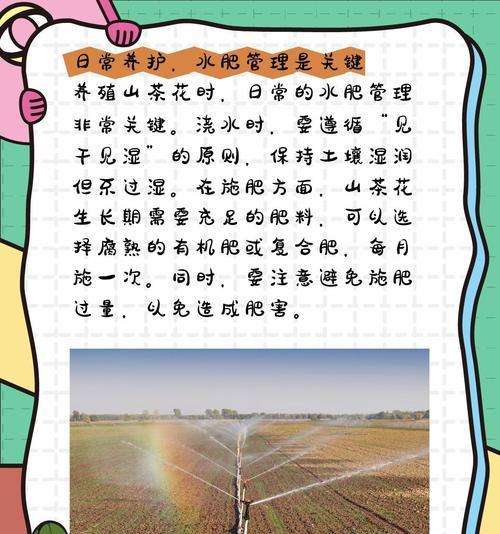 日常养护，水肥管理是关键
养殖山茶花时，日常的水肥管理
非常关键。浇水时，要遵循“见
干见湿”的原则，保持土壤湿润
但不过湿。在施肥方面，山茶花
生长期需要充足的肥料，可以选
择腐熟的有机肥或复合肥，每月
施一次。同时，要注意避免施肥
过量，以免造成肥害。